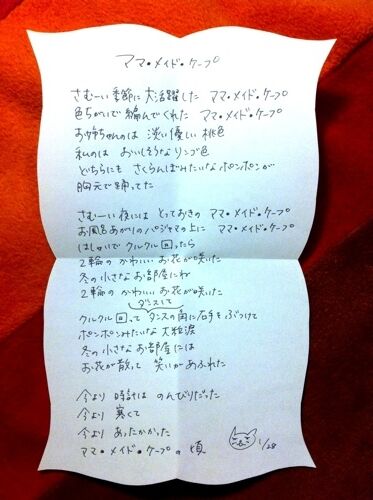 ママ・メイド・ケープ
さむーい季節に大活躍した ママ・メイド・ケープ
色ちがいで編んでくれた ママ・メイド・ケープ
お姉ちゃんのは 淡い優しい桃色
私のは おいしそうなリンゴ色
どちらにも さくらんぼみたいなポンポンが
胸元で踊ってた
さむーい夜には とっておきの ママ・メイド・ケープ
お風呂あがりのパジャマの上に ママ・メイド・ケープ
はしゃいでクルクル回ったら
2輪の かわいい お花が咲いた
冬の小さなお部屋にね
2輪の かわいい お花が咲いた
ダンスして
クルクル回って タンスの角に右手をぶつけて
ポンポンみたいな大粒涙
冬の小さなお部屋には
お花が散って 笑いがあふれた
今より 時計は のんびりだった
今より 寒くて
今より あったかかった
ママ・メイド・ケープの頃
1/28